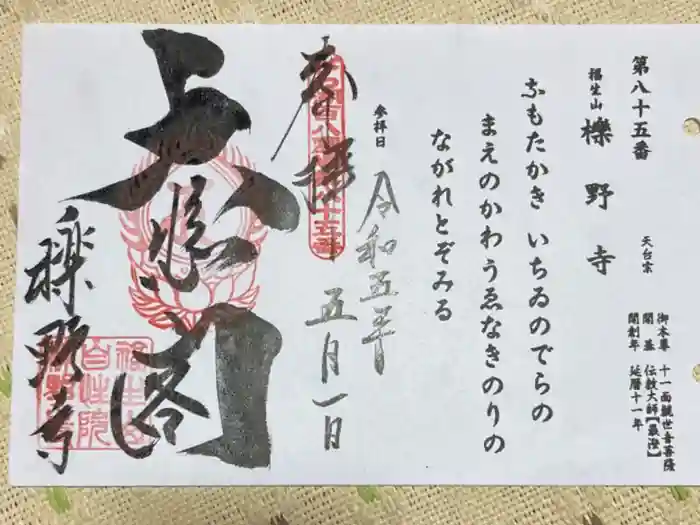 第八十五番
福生山 櫟野寺
天台宗
御本尊 十一面観世音菩薩
開基 伝教大師【最澄】
開創年 延暦十一年
なもたかき いちゐのでらの
まえのかわ うゑなきのりの
ながれとぞみる
参拝日
令和五年
五月一日
奉拝
大悲閣
櫟野寺